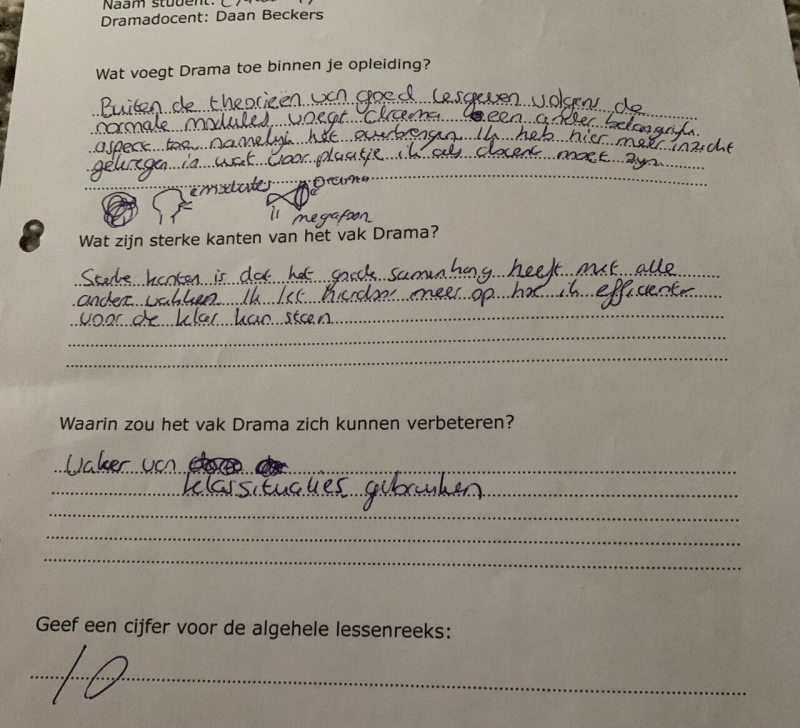 Naam student:
Dramadocent: Daan Beckers
Wat voegt Drama toe binnen je opleiding?
Buiten de theorieën van goed lesgeven volgens de
normale modules voegt drama een ander belangrijk
aspect toe, namelijk het overbrengen. Ik heb hier meer inzicht
gekregen in wat voor plaatje ik als docent moet zijn
Drama
megafoon
Wat zijn sterke kanten van het vak Drama?
Sterke kanten is dat het goede samenhang heeft met alle
ander vakken. Ik let hierdoor meer op hoe ik efficienter
voor de klas kan staan
Waarin zou het vak Drama zich kunnen verbeteren?
Vaker van
klassituaties gebruiken
Geef een cijfer voor de algehele lessenreeks:
10